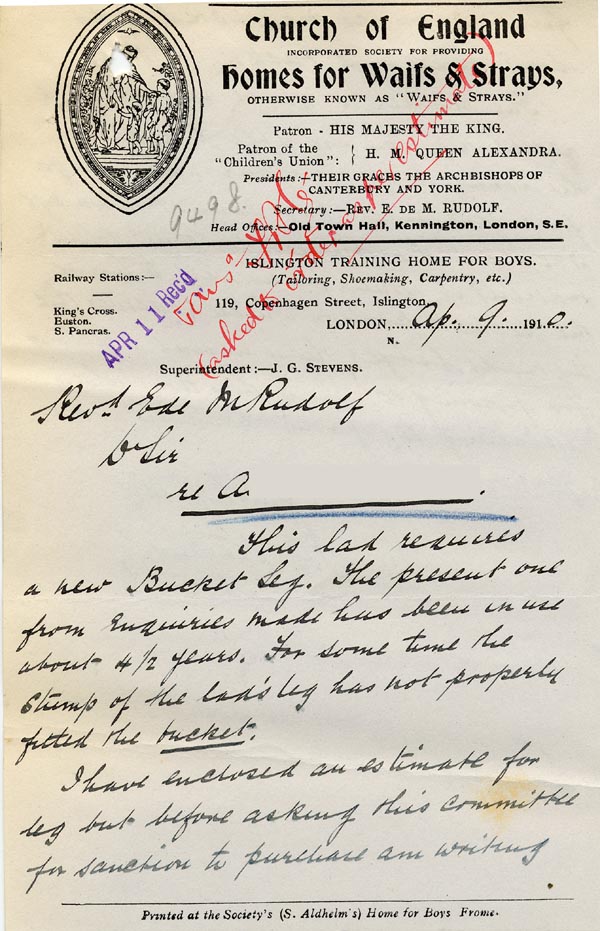 Church of England
INCORPORATED SOCIETY FOR PROVIDING
Homes for Waifs & Strays,
OTHERWISE KNOWN AS "WAIFS & STRAYS."
Patron - HIS MAJESTY THE KING.
Patron of the "Children's Union": } H. M. QUEEN ALEXANDRA.
Presidents:—THEIR GRACES THE ARCHBISHOPS OF
CANTERBURY AND YORK.
Secretary:—REV. E. DE M. RUDOLF.
Head Offices:—Old Town Hall, Kennington, London, S.E.
9498.
ISLINGTON TRAINING HOME FOR BOYS.
(Tailoring, Shoemaking, Carpentry, etc.)
Railway Stations:—
King's Cross.
Euston.
S. Pancras.
APR 11 Rec'd
(asked to order as per estimate)
119, Copenhagen Street, Islington,
LONDON, Ap. 9. 1910.
N.
Superintendent:—J. G. STEVENS.
Revd. E de M Rudolf
Dr Sir
re A.
This lad requires
a new Bucket Leg. The present one
from Enquiries made has been in use
about 4½ years. For some time the
Stump of the lad's leg has not properly
fitted the bucket.
I have enclosed an estimate for
leg but before asking this Committee
for sanction to purchase am writing
Printed at the Society's (S. Aldhelm's) Home for Boys Frome.